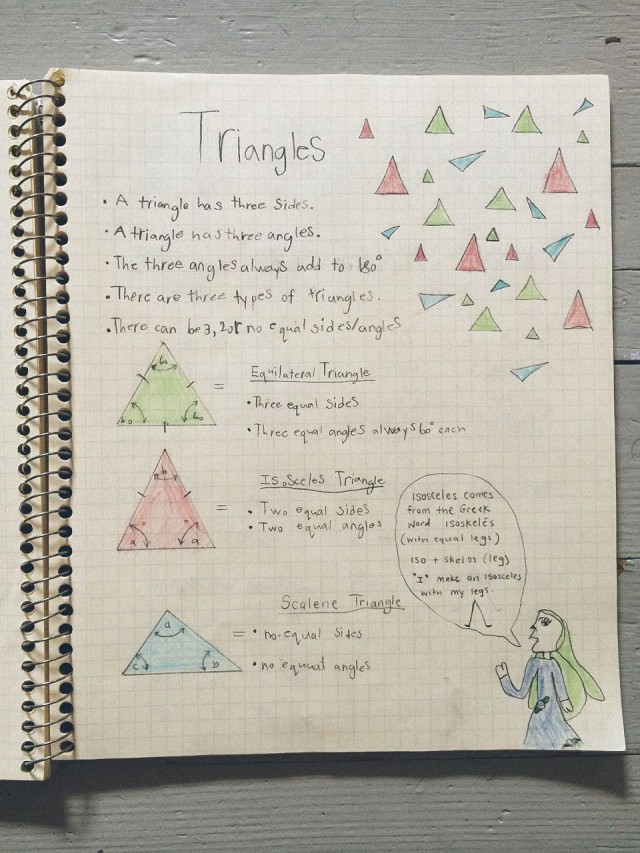 Triangles
• A triangle has three sides.
• A triangle has three angles.
• The three angles always add to 180°
• There are three types of triangles.
• There can be 3, 2 or no equal sides/angles
60
60
60
=
Equilateral Triangle
• Three equal sides
• Three equal angles always 60° each
b
a
a
=
Isosceles Triangle
• Two equal sides
• Two equal angles
Isosceles comes
from the Greek
word isoskelés
(with equal legs)
iso + skelos (leg)
"I" make an isosceles
with my legs.
a
c
b
=
Scalene Triangle
• no equal sides
• no equual angles